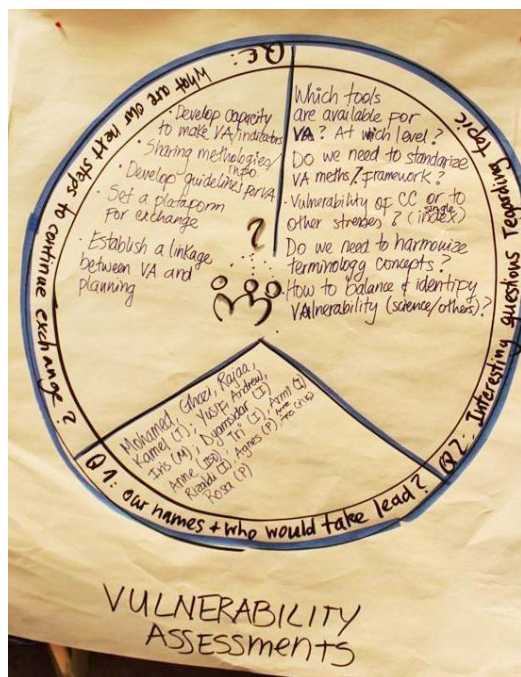 Q3:
What are our next steps to continue exchange?
· Develop capacity
to make VA/indicators
· Sharing methodologies/
info
· Develop guidelines for VA
· Set a plataporm
for exchange
· Establish a linkage
between VA and
planning
Q2: Interesting questions regarding topic
Which tools
are available for
VA? At wich level?
Do we need to standarize
VA meths/framework?
· Vulnerability of CC or to
other stresses? (single
index)
Do we need to harmonize
terminology concepts?
· How to balance & identify
VAlnerability (science/others)?
?
Q1: our names + who would take lead?
Mohamed, Ghazi, Rajaa,
Kamel (I); Yusif, Andrew,
Iris (M), Dyamsidar (I)
Anne (IISD), Tri (I), Armi (I)
Rizaldi (I), Agnes (P),
Rosa (P)
VULNERABILITY
ASSESSMENTS